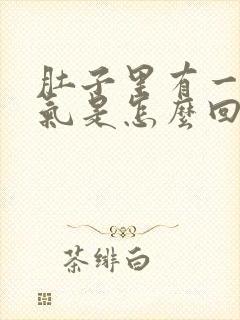 肚子里有一
氣是怎麼回
茶绯白